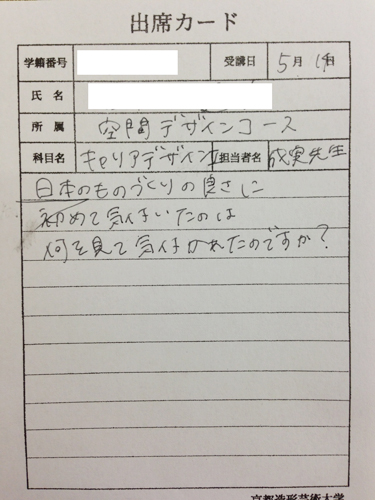 出席カード
学籍番号 受講日 5月14日
氏名
所属 空間デザインコース
科目名 キャリアデザインI 担当者名 成実先生
日本のものづくりの良さに
初めて気付いたのは
何を見て気付かれたのですか?
京都造形芸術大学